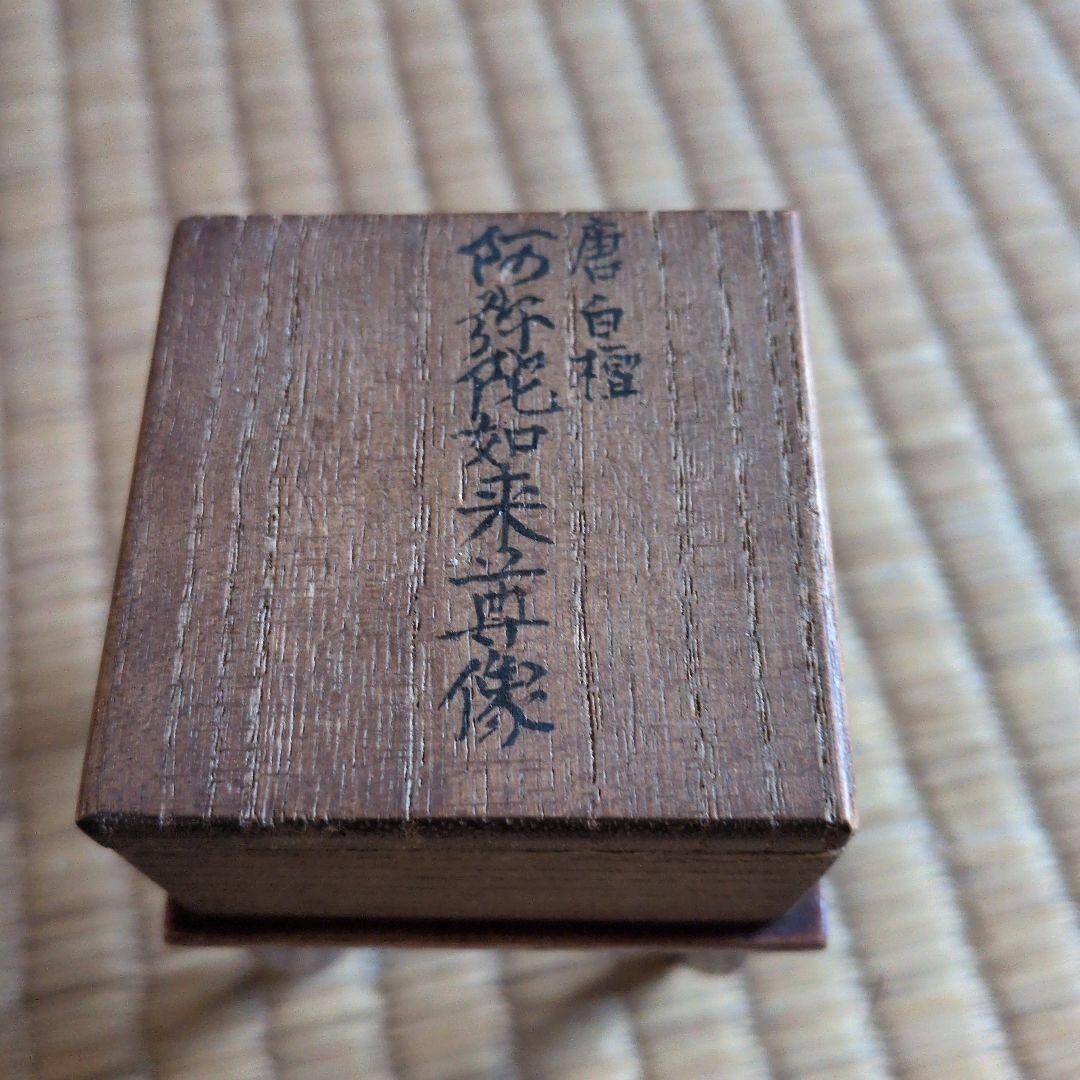 唐白檀
阿弥陀如来尊像